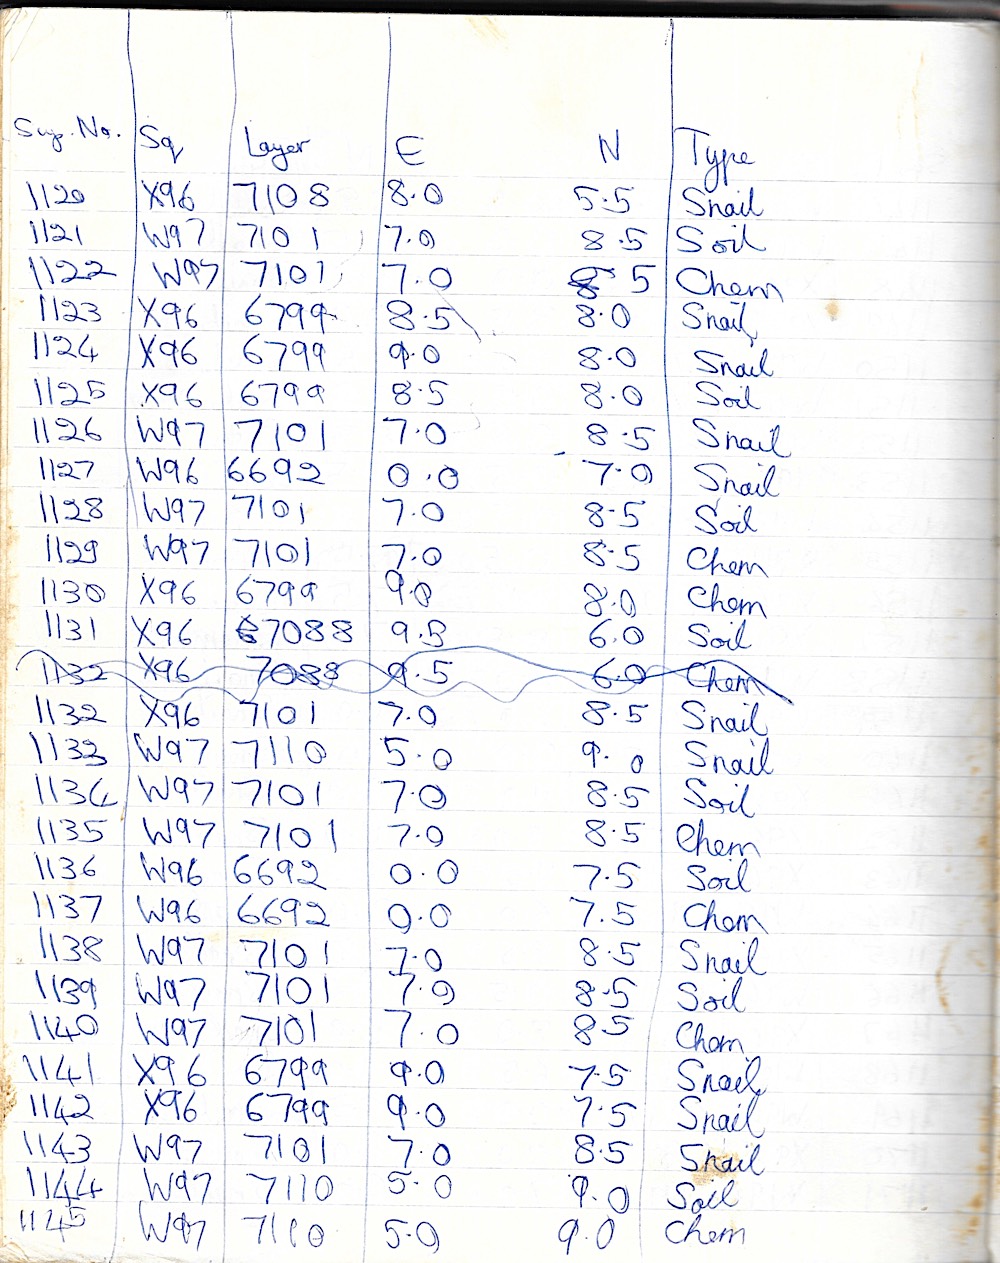 Sq Layer E N Type
1120 X96 7108 8.0 5.5 Snail
1121 W97 7101 7.0 8.5 Soil
1122 W97 7101 7.0 8.5 Chem
1123 X96 6799 8.5 8.0 Snail
1124 X96 6799 9.0 8.0 Snail
1125 X96 6799 8.5 8.0 Soil
1126 W97 7101 7.0 8.5 Snail
1127 W96 6692 0.0 7.0 Snail
1128 W97 7101 7.0 8.5 Soil
1129 W97 7101 7.0 8.5 Chem
1130 X96 6799 9.0 8.0 Chem
1131 X96 7088 9.5 6.0 Soil
1132 X96 7088 9.5 6.0 Chem
1132 X96 7101 7.0 8.5 Snail
1133 W97 7110 5.0 9.0 Snail
1134 W97 7101 7.0 8.5 Soil
1135 W97 7101 7.0 8.5 Chem
1136 W96 6692 0.0 7.5 Soil
1137 W96 6692 0.0 7.5 Chem
1138 W97 7101 7.0 8.5 Snail
1139 W97 7101 7.0 8.5 Soil
1140 W97 7101 7.0 8.5 Chem
1141 X96 6799 9.0 7.5 Snail
1142 X96 6799 9.0 7.5 Snail
1143 W97 7101 7.0 8.5 Snail
1144 W97 7110 5.0 9.0 Soil
1145 W97 7110 5.0 9.0 Chem